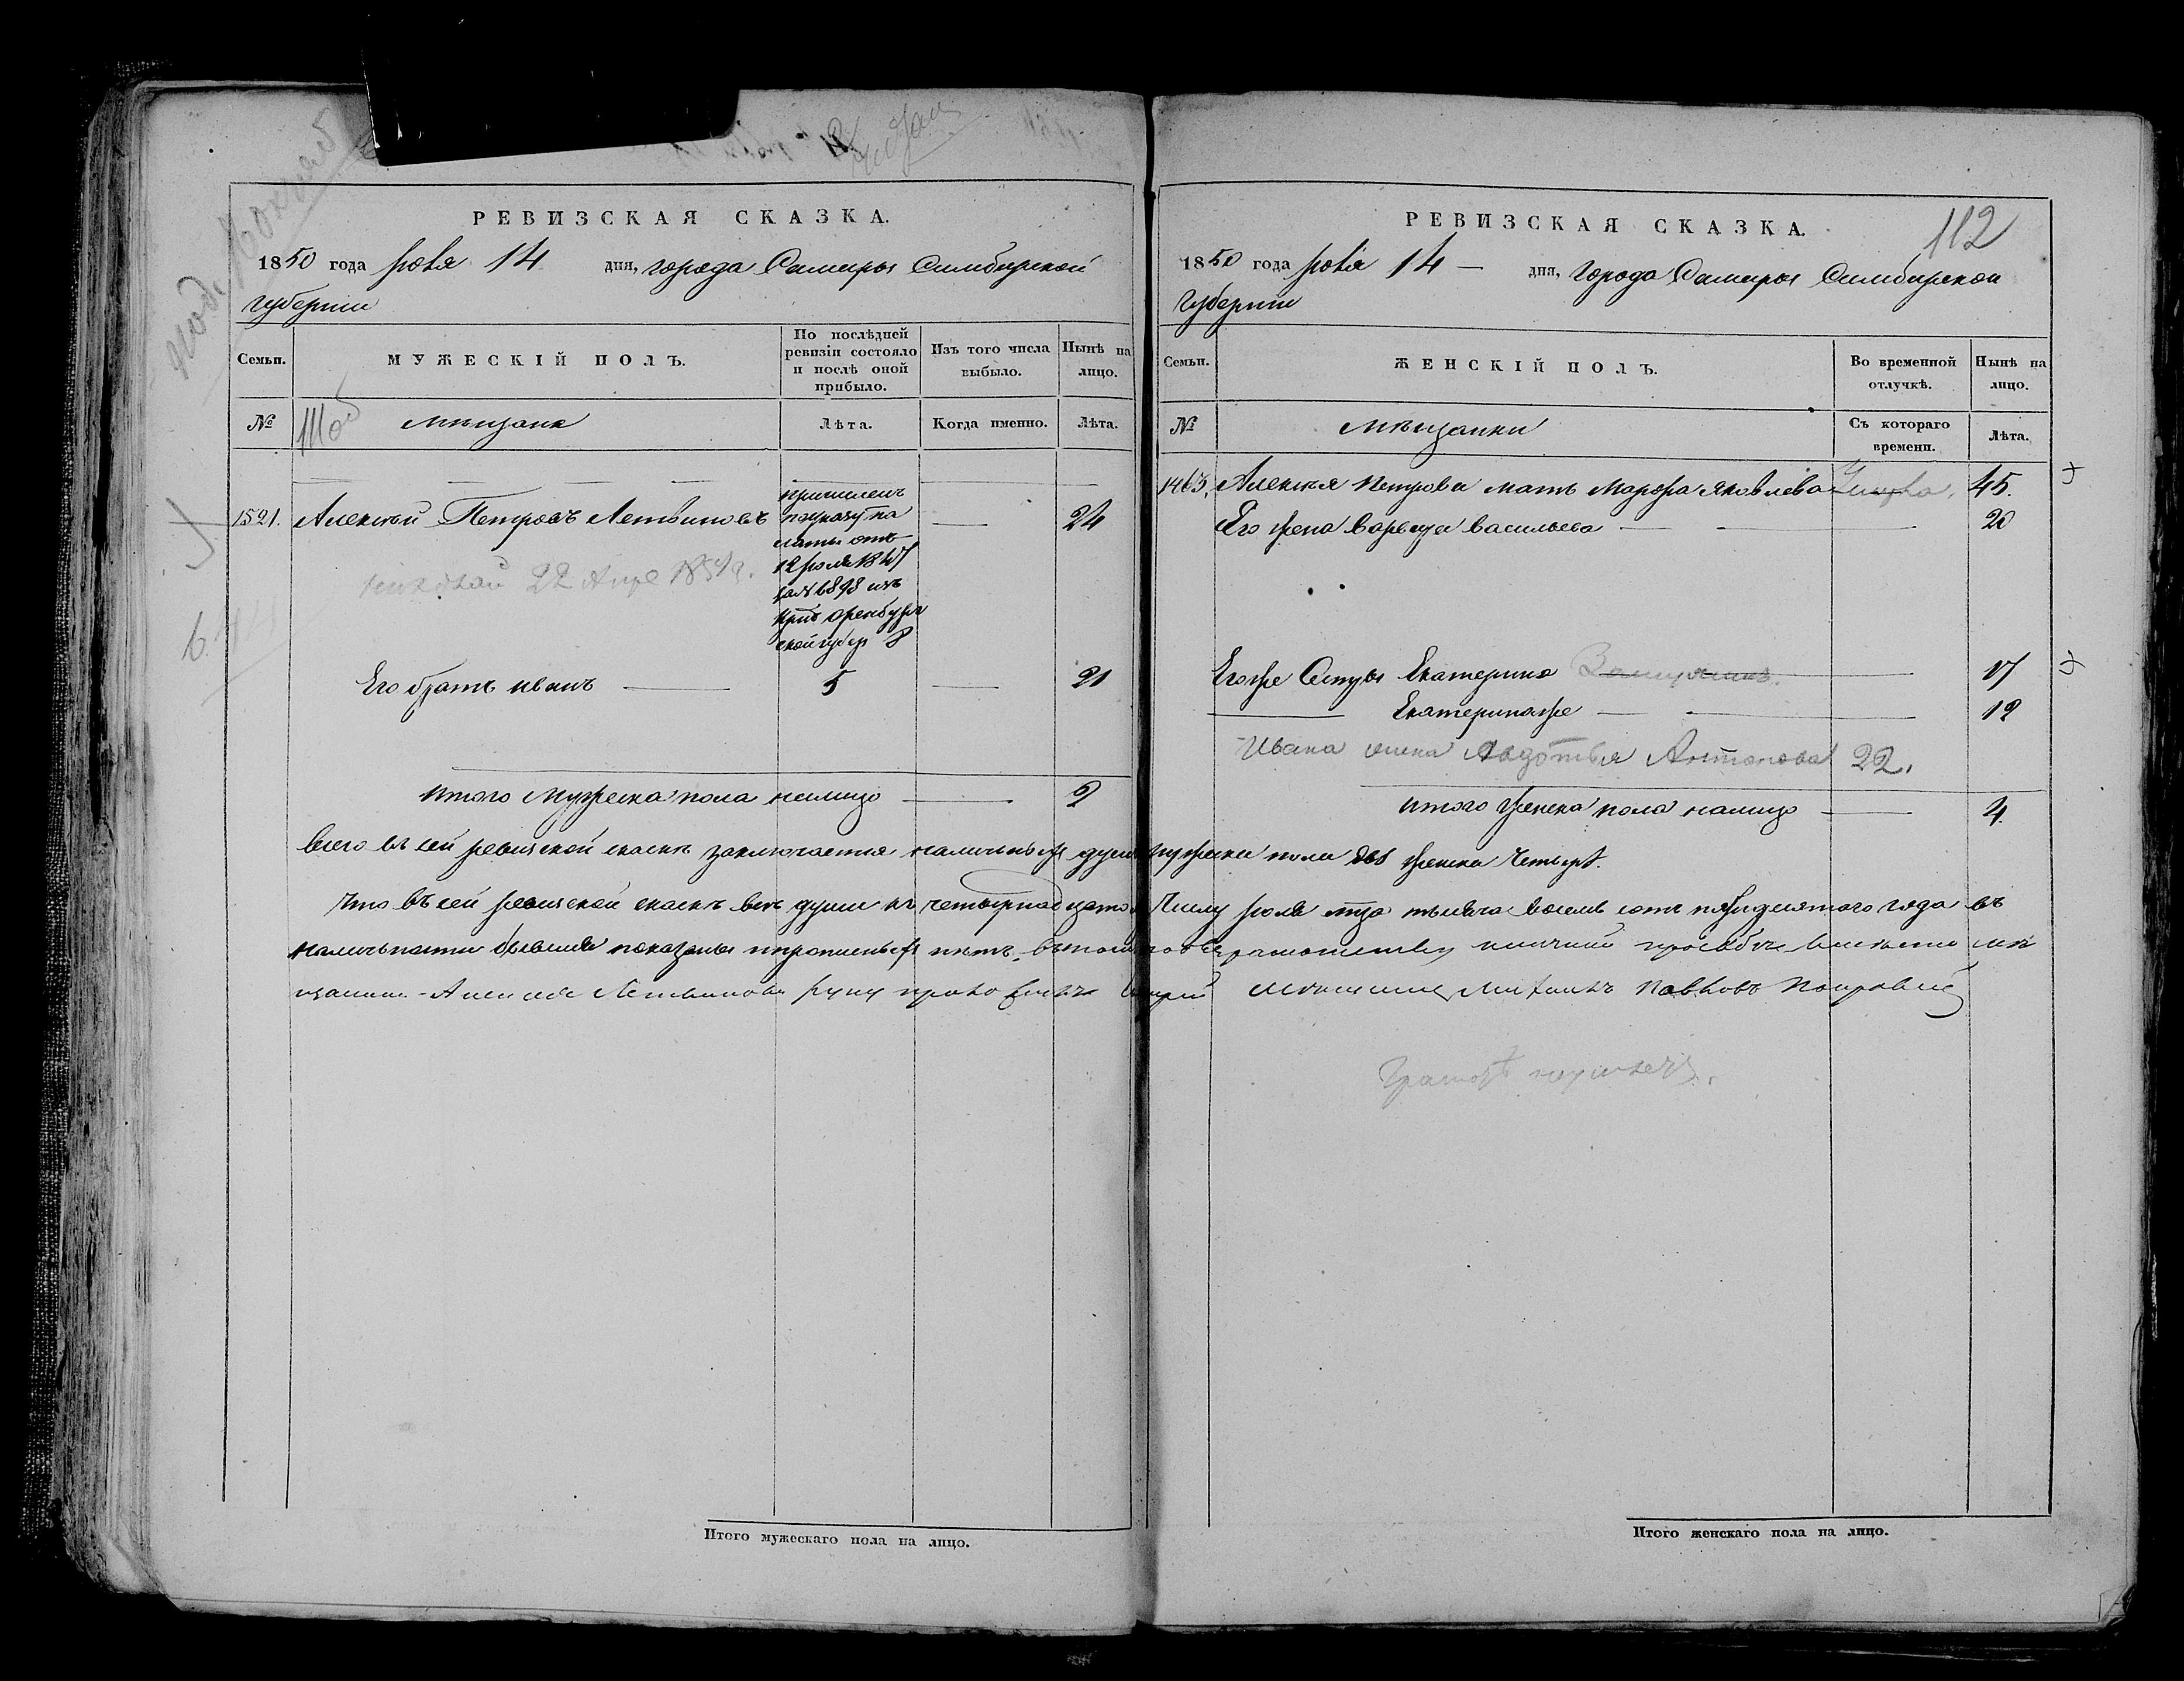 РЕВИЗСКАЯ СКАЗКА.
1850 года ноля 14 дня, города Самары Симбирской
губернии
Семьи. МУЖЕСКІЙ ПОЛЪ. По послѣдней ревизіи состояло и послѣ оной прибыло. Изъ того числа выбыло. Нынѣ на лицо.
№ мещане Лѣта. Когда именно. Лѣта.
1521. Алексѣй Петровъ Летвиновъ 24
причисленъ
по указу па
латы отъ
12 1847
за № 6898 изъ
Оренбург
ской губер 8
22 Апре
Его братъ иванъ 5 21
итого мужеска пола налицо 2
РЕВИЗСКАЯ СКАЗКА.
112
1850 года 14 дня, города Самары Симбирской
губернии
Семьи. ЖЕНСКІЙ ПОЛЪ. Во временной отлучкѣ. Нынѣ на лицо.
№ мѣщанки Съ котораго времени. Лѣта.
1463. Алексея Петрова мать Марфа Яковлева 45.
Его жена варвара васильева 20
Егоже Сестры Екатерина 17
Екатеринаже 12
Ивана жена Авдотья Антонова 22.
итого женска пола налицо 4
всего въ сей ревизской сказкѣ заключается наличныхъ душъ мужеска пола две женска четыре.
Что въ сей ревизской сказкѣ всѣ души къ четырнадцатому Числу тысяча восемь сотъ пятидесятого года въ
наличности бывшие показаны и прописныхъ нетъ.
Летвинова руку приложилъ Михаилъ
Грамотѣ неумѣетъ.
Итого мужескаго пола на лицо.
Итого женскаго пола на лицо.